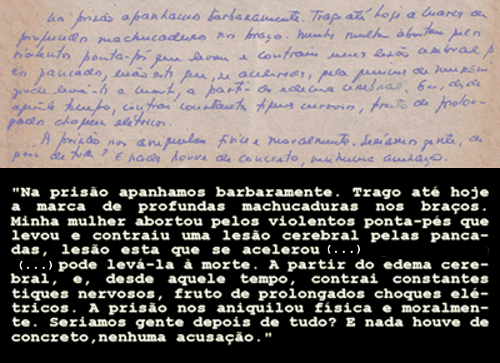 Na prisão apanhamos barbaramente. Trago até hoje a marca de
profundas machucaduras nos braços. Minha mulher abortou pelos
violentos ponta-pés que levou e contraiu uma lesão cerebral p
pancadas, lesão esta que se acelerou, pela
pode levá-la à morte, a partir do edema cerebral. Eu, desde
aquele tempo, contrai constantes tiques nervosos, fruto de prolon-
gados choques elétricos.
A prisão nos aniquilou física e moralmente. Seríamos gente, de-
pois de tudo? E nada houve de concreto, nenhuma acusação.
"Na prisão apanhamos barbaramente. Trago até hoje
a marca de profundas machucaduras nos braços.
Minha mulher abortou pelos violentos ponta-pés que
levou e contraiu uma lesão cerebral pelas panca-
das, lesão esta que se acelerou (...)
(...) pode levá-la à morte. A partir do edema cere-
bral, e, desde aquele tempo, contrai constantes
tiques nervosos, fruto de prolongados choques elé-
tricos. A prisão nos aniquilou física e moralmen-
te. Seriamos gente depois de tudo? E nada houve de
concreto,nenhuma acusação."